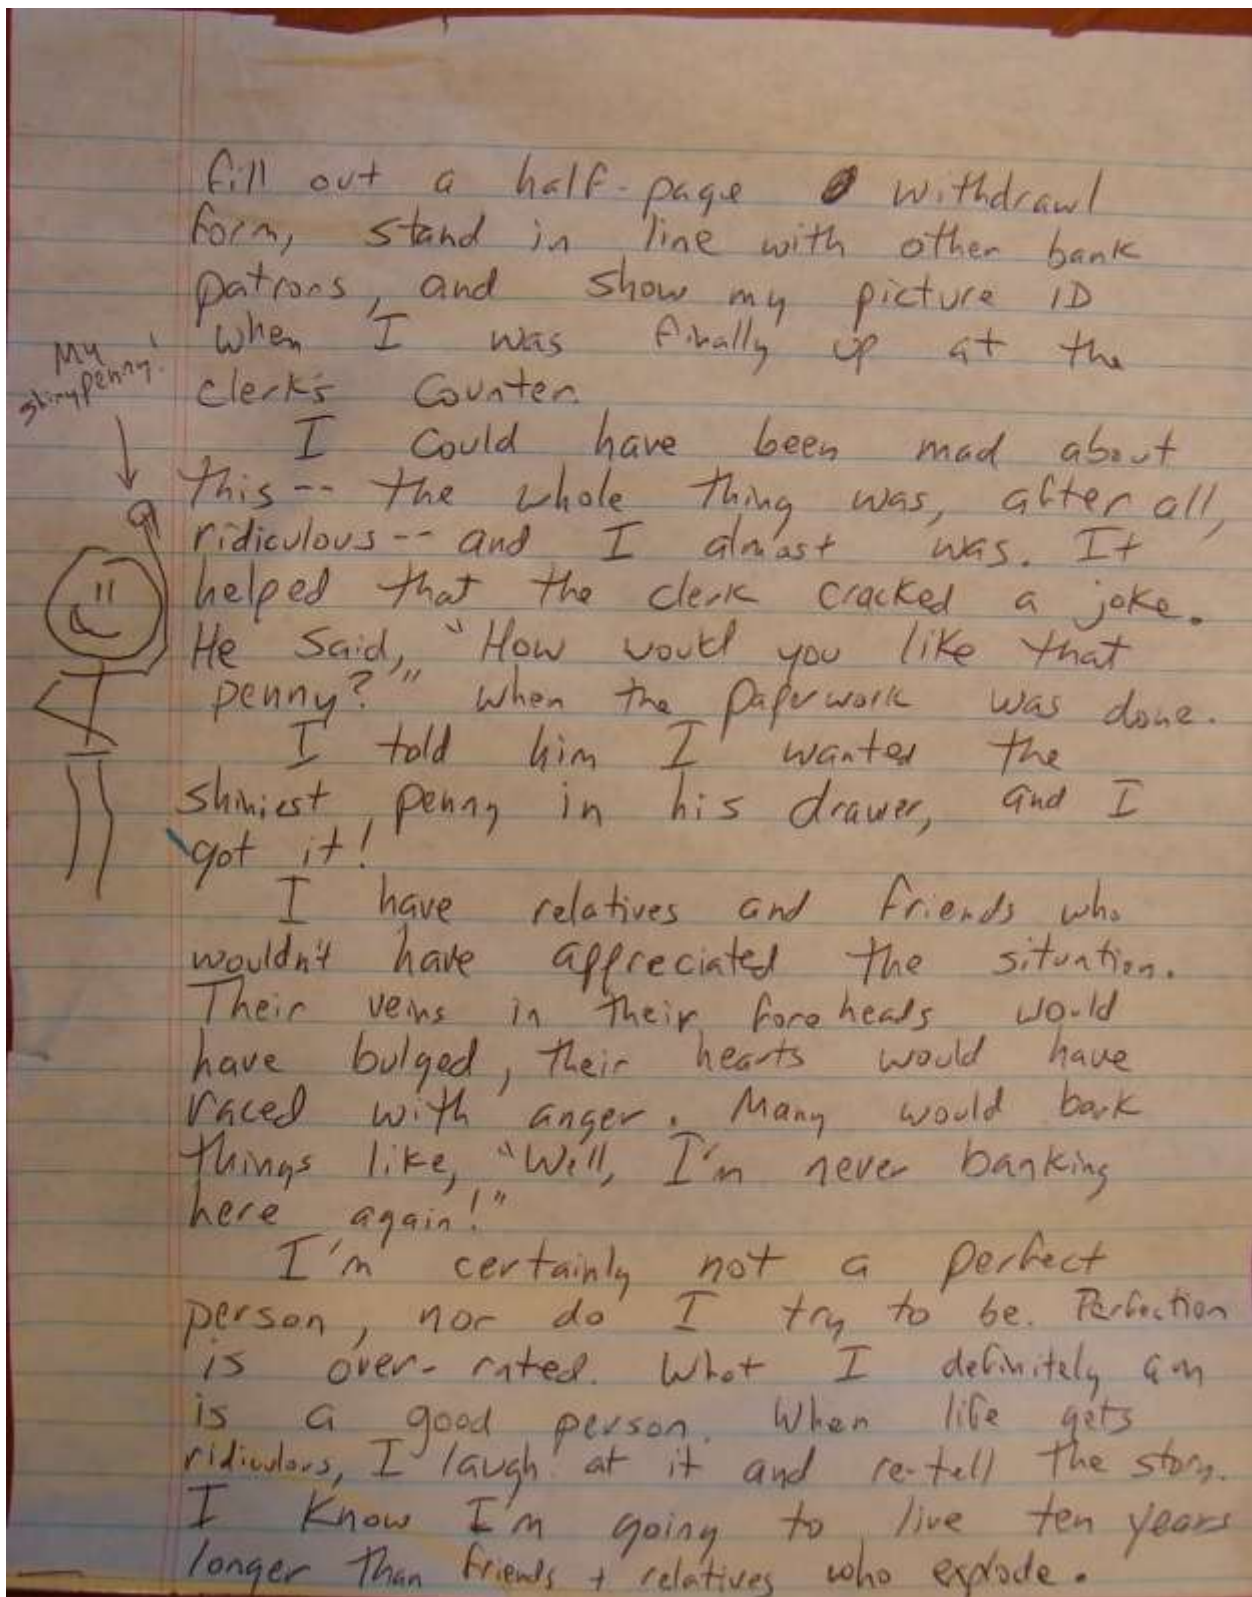 fill out a half-page withdrawl
form, stand in line with other bank
patrons, and show my picture ID
when I was finally up at the
clerk's counter.
My
shiny penny!
I could have been mad about
this -- the whole thing was, after all,
ridiculous -- and I almost was. It
helped that the clerk cracked a joke.
He said, "How would you like that
penny?" when the paperwork was done.
I told him I wanted the
shiniest penny in his drawer, and I
got it!
I have relatives and friends who
wouldn't have appreciated the situation.
Their veins in their foreheads would
have bulged, their hearts would have
raced with anger. Many would bark
things like, "Well, I'm never banking
here again!"
I'm certainly not a perfect
person, nor do I try to be. Perfection
is over-rated. What I definitely am
is a good person. When life gets
ridiculous, I laugh at it and re-tell the story.
I know I'm going to live ten years
longer than friends + relatives who explode.